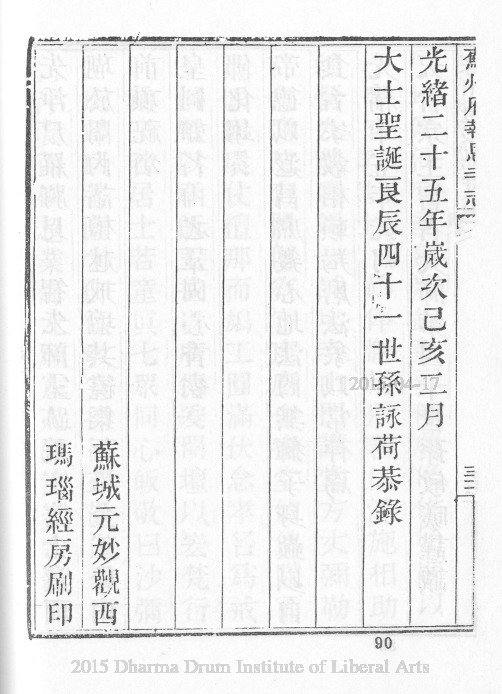 蘇州府報恩寺志
光緒二十五年歲次己亥二月
大士聖誕良辰四十一世孫詠荷恭錄
蘇城元妙觀西
瑪瑙經房刷印
2015-04-17
90
2015 Dharma Drum Institute of Liberal Arts